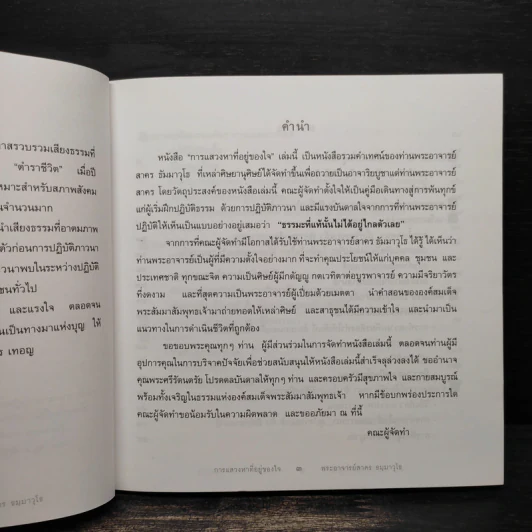 าสรวบรวมเสียงธรรมที่
"ตำราชีวิต" เมื่อปี
หมาะสำหรับสภาพสังคม
นจำนวนมาก
นำเสียงธรรมที่อาดมภาพ
ตัวก่อนการปฏิบัติภาวนา
วนาพบในระหว่างปฏิบัติ
ชนทั่วไป
และแรงใจ ตลอดจน
นเป็นทางมาแห่งบุญ ให้
ร เทอญ
คำนำ
หนังสือ "การแสวงหาที่อยู่ของใจ" เล่มนี้ เป็นหนังสือรวมคำเทศน์ของท่านพระอาจารย์
สาคร ธัมมาวุโธ ที่เหล่าศิษยานุศิษย์ได้จัดทำขึ้นเพื่อถวายเป็นอาจาริยบูชาแด่ท่านพระอาจารย์
สาคร โดยวัตถุประสงค์ของหนังสือเล่มนี้ คณะผู้จัดทำตั้งใจให้เป็นคู่มือเดินทางสู่การพ้นทุกข์
แก่ผู้เริ่มฝึกปฏิบัติธรรม ด้วยการปฏิบัติภาวนา และมีแรงบันดาลใจจากการที่ท่านพระอาจารย์
ปฏิบัติให้เห็นเป็นแบบอย่างอยู่เสมอว่า "ธรรมะที่แท้นั้นไม่ได้อยู่ไกลตัวเลย"
จากการที่คณะผู้จัดทำมีโอกาสได้รับใช้ท่านพระอาจารย์สาคร ธัมมาวุโธ ได้รู้ ได้เห็นว่า
ท่านพระอาจารย์เป็นผู้ที่มีความตั้งใจอย่างมาก ที่จะทำคุณประโยชน์ให้แก่บุคคล ชุมชน และ
ประเทศชาติ ทุกขณะจิต ความเป็นศิษย์ผู้มีกตัญญู กตเวทิตาต่อบูรพาจารย์ ความมีจริยาวัตร
ที่งดงาม และที่สุดความเป็นพระอาจารย์ผู้เปี่ยมด้วยเมตตา นำคำสอนขององค์สมเด็จ
พระสัมมาสัมพุทธเจ้ามาถ่ายทอดให้เหล่าศิษย์ และสาธุชนได้มีความเข้าใจ และนำมาเป็น
แนวทางในการดำเนินชีวิตที่ถูกต้อง
ขอขอบพระคุณทุกๆ ท่าน ผู้มีส่วนร่วมในการจัดทำหนังสือเล่มนี้ ตลอดจนท่านผู้มี
อุปการคุณในการบริจาคปัจจัยเพื่อช่วยสนับสนุนให้หนังสือเล่มนี้สำเร็จลุล่วงลงได้ ขออำนาจ
คุณพระศรีรัตนตรัย โปรดดลบันดาลให้ทุกๆ ท่าน และครอบครัวมีสุขภาพใจ และกายสมบูรณ์
พร้อมทั้งเจริญในธรรมแห่งองค์สมเด็จพระสัมมาสัมพุทธเจ้า หากมีข้อบกพร่องประการใด
คณะผู้จัดทำขอน้อมรับในความผิดพลาด และขออภัยมา ณ ที่นี้
คณะผู้จัดทำ
การแสวงหาที่อยู่ของใจ ๓ พระอาจารย์สาคร ธมมาวุโธ
าคร ธมมาวุโธ